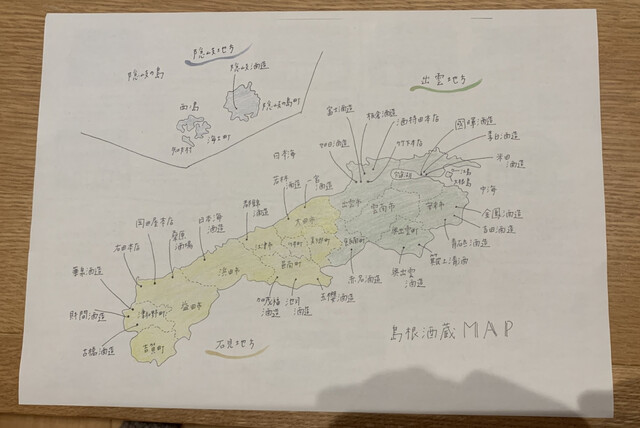 隠岐地方
隠岐の島
隠岐酒造
西ノ島
隠岐の島町
海士町
知夫村
出雲地方
富士酒造
板倉酒造
酒持田本店
國暉酒造
旭日酒造
竹下本店
李白酒造
米田酒造
日本海
中海
大根島
若林酒造
一宮酒造
出雲市
雲南市
安来市
金鳳酒造
吉田酒造
青砥酒造
奥出雲町
奥出雲酒造
飯南町
赤名酒造
都錦酒造
大田市
日本海酒造
江津市
川本町
美郷町
邑南町
岡田屋本店
桑原酒場
右田本店
浜田市
加茂福酒造
池月酒造
玉櫻酒造
華泉酒造
財間酒造
古橋酒造
津和野町
益田市
吉賀町
石見地方
島根酒蔵MAP